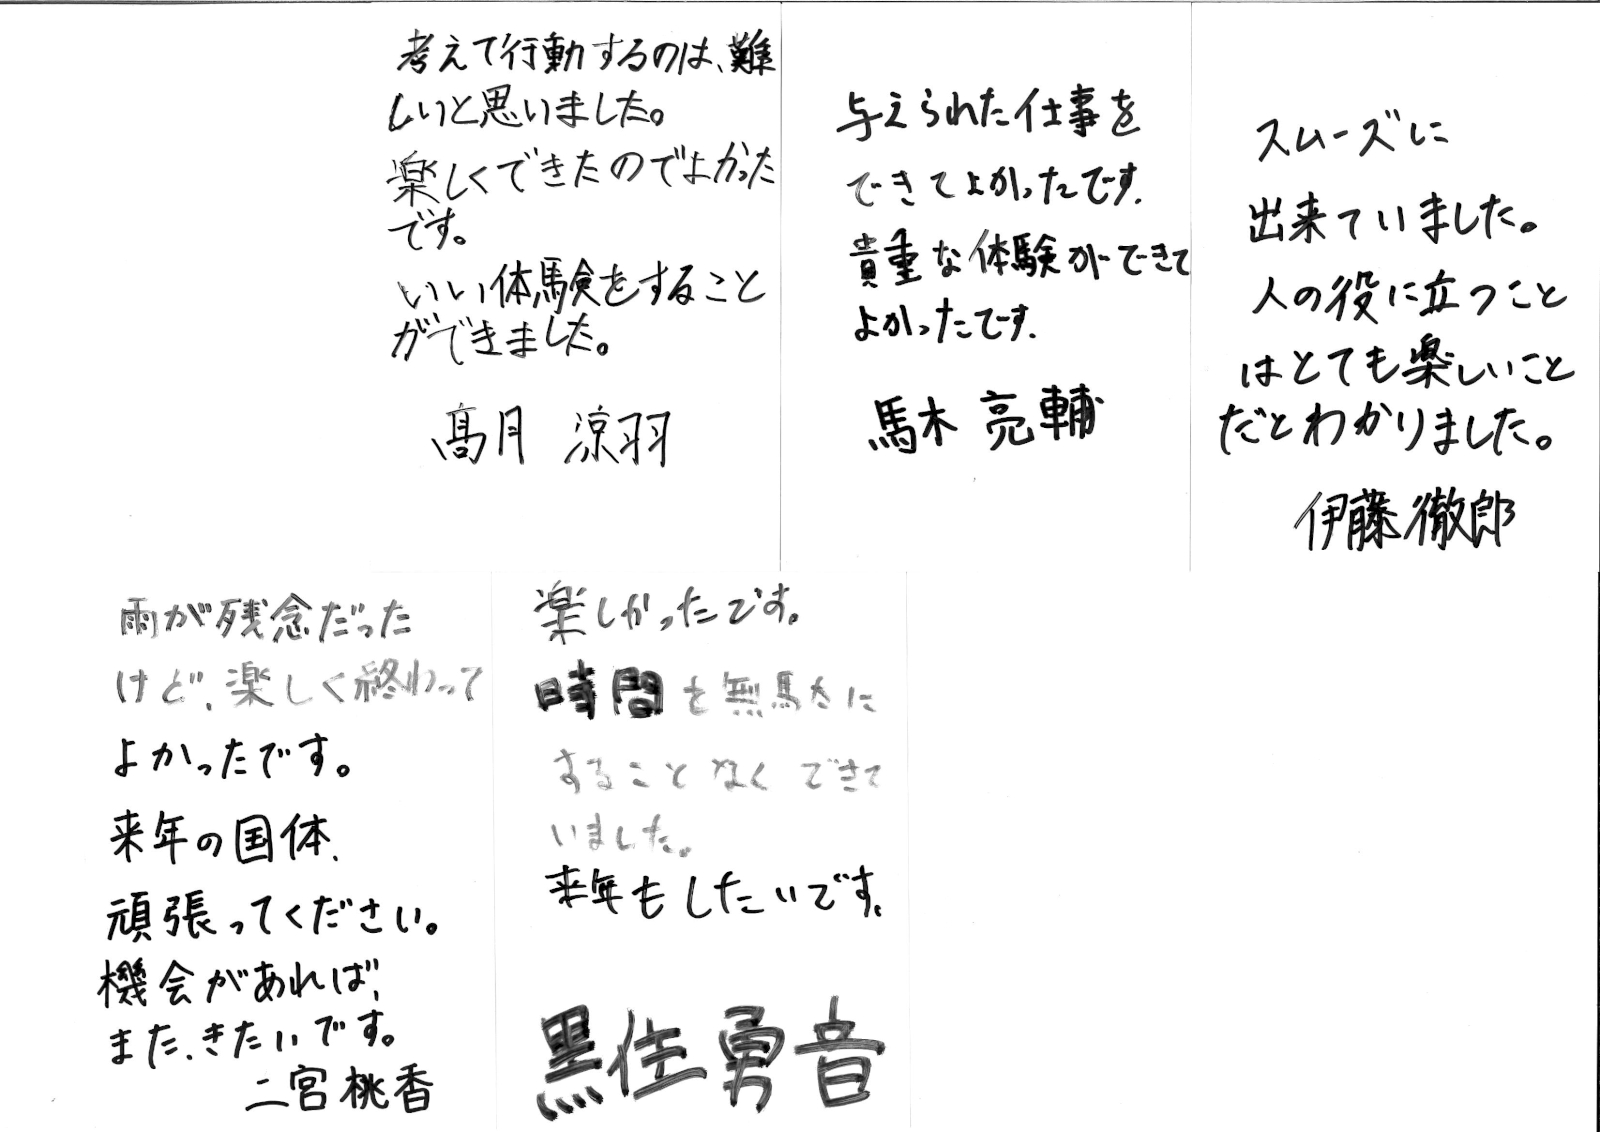 考えて行動するのは、難
しいと思いました。
楽しくできたのでよかった
です。
いい体験をすること
ができました。
髙月 涼羽
与えられた仕事を
できてよかったです.
貴重な体験ができて
よかったです.
馬木 亮輔
スムーズに
出来ていました。
人の役に立つこと
はとても楽しいこと
だとわかりました。
伊藤 徹郎
雨が残念だった
けど、楽しく終わって
よかったです。
来年の国体、
頑張ってください。
機会があれば、
また、きたいです。
二宮 桃香
楽しかったです。
時間を無駄に
することなくできて
いました。
来年もしたいです。
黒住 勇音